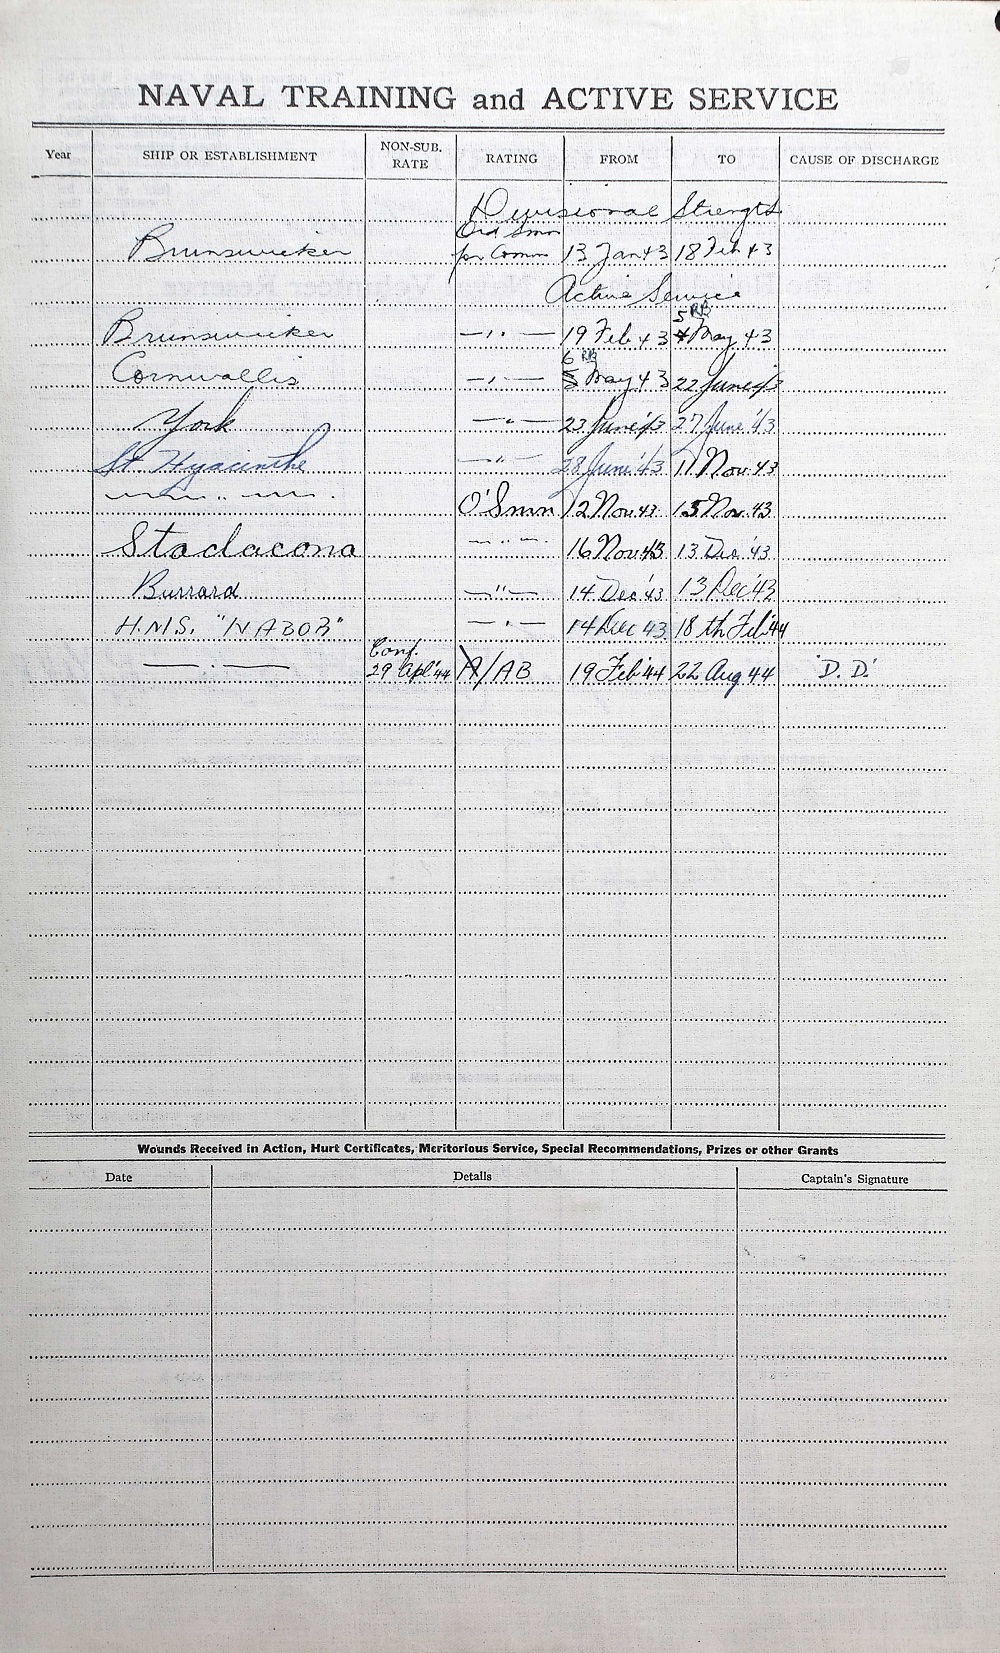 NAVAL TRAINING and ACTIVE SERVICE
Year SHIP OR ESTABLISHMENT NON-SUB. RATE RATING FROM TO CAUSE OF DISCHARGE
Divisional Strength
Brunswicker Ord Smn for Comm 13 Jan 43 18 Feb 43
Active Service
Brunswicker —〃— 19 Feb 43 4 5 RB May 43
Cornwallis —〃— 5 6 RB May 43 22 June '43
York —〃— 23 June '43 27 June '43
St. Hyacinthe —〃— 28 June '43 11 Nov. 43
—〃— O'Smn 12 Nov. 43 15 Nov. 43
Stadacona —〃— 16 Nov. 43 13 Dec '43
Burrard —〃— 14 Dec '43 13 Dec '43
H.M.S. "NABOB" —〃— 14 Dec 43 18th Feb '44
—〃— Conf. 29 Apl '44 A/AB 19 Feb '44 22 Aug 44 'D.D.'
Wounds Received in Action, Hurt Certificates, Meritorious Service, Special Recommendations, Prizes or other Grants
Date Details Captain's Signature